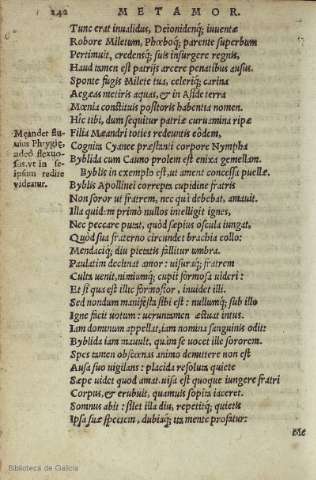 242 METAMOR.
Tunc erat inualidus, Deionidenq; iuuentæ
Robore Miletum, Phœboq; parente superbum
Pertimuit, credensq; suis insurgere regnis,
Haud tamen est patrijs arcere penatibus ausus.
Sponte fugis Milete tua, celeriq; carina
Aegæas metiris aquas, & in Aside terra
Mœnia constituis positoris habentia nomen.
Hic tibi, dum sequitur patriæ curuamina ripæ
Filia Mæandri toties redeuntis eódem,
Cognita Cyanee præstanti corpore Nympha
Byblida cum Cauno prolem est enixa gemellam.
Byblis in exemplo est, ut ament concessa puellæ.
Byblis Apollinei correpta cupidine fratris
Non soror ut fratrem, nec quà debebat, amauit.
Illa quidem primò nullos intelligit ignes,
Nec peccare putat, quòd sæpius oscula iungat,
Quòd sua fraterno circundet brachia collo:
Mendaciq; diu pietatis fallitur umbra.
Paulatim declinat amor: uisuraq; fratrem
Culta uenit, nimiumq; cupit formosa uideri:
Et si qua est illic formosior, inuidet illi.
Sed nondum manifesta sibi est: nullumq; sub illo
Igne facit uotum: ueruntamen æstuat intus.
Iam dominum appellat, iam nomina sanguinis odit:
Byblida iam mauult, quàm se uocet ille sororem.
Spes tamen obscœnas animo demittere non est
Ausa suo uigilans: placida resoluta quiete
Sæpe uidet quod amat. uisa est quoque iungere fratri
Corpus, & erubuit, quamuis sopita iaceret.
Somnus abit: silet illa diu, repetitq; quietis
Ipsa suæ speciem, dubiaq; ita mente profatur:
Me
Meander flu-
uius Phrygię,
adeò flexuo-
sus, vt in se-
ipsum redire
videatur.
Biblioteca de Galicia